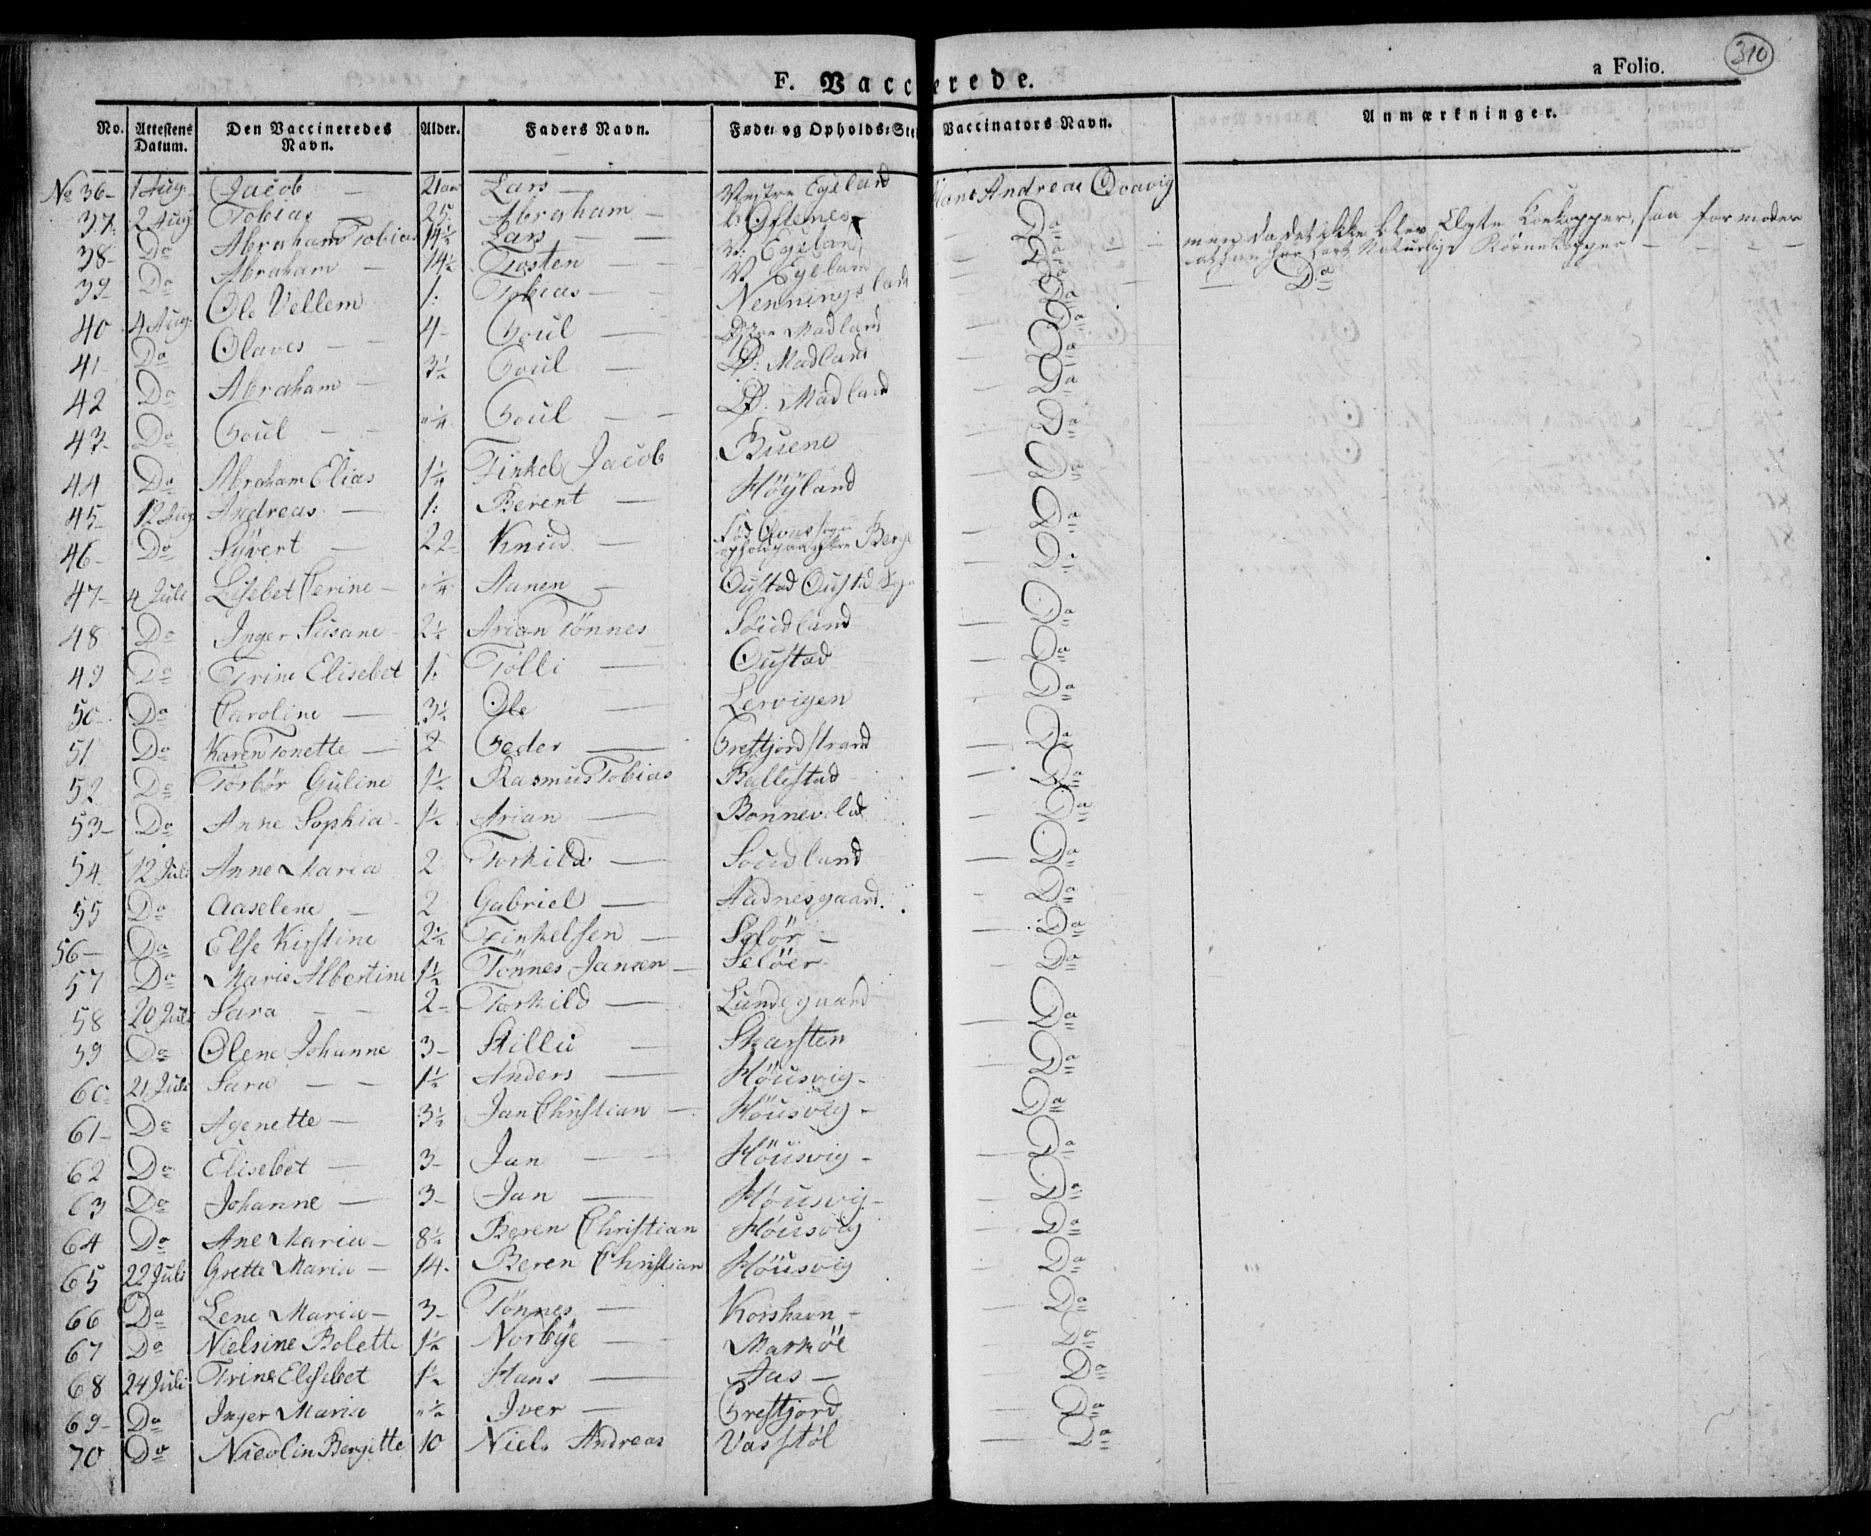 310
F. Vaccinerede.
a Folio.
No. Attestens Datum. Den Vaccineredes Navn. Alder. Faders Navn. Føde- og Opholds-Sted Vaccinators Navn. Anmærkninger.
No 36- 1 Aug. Jacob — 21 aar Lars — Vestre Egeland Hans Andreas
37- 2 Aug Tobias 25. Abraham — Oftenes Do men da det ikke blev Ægte Koekopper, saa formoder
38- Do Abraham Tobias 14½ Lars — V. Egeland Do at han har havt Naturlige
39- Do Abraham — 14½ Tosten — V. Egeland Do Do
40 4 Aug. Ole Vellem 1. Tobias — Nenningsland Do
41 Do Olaves — 4- Poul — Østre Madland Do
42 Do Abraham — 3½ Poul — Ø: Madland Do
43- Do Poul — ¼ Poul — Ø. Madland Do
44 Do Abraham Elias 1¼ Tinkel Jacob Buene Do
45- 12 Aug Andreas — 1: Berent — Höyland Do
46- Do Syvert — 22- Knud — Fød Sogn Do
47- 4 Juli Lisebet Serine — ¼ Aanen — Oustad Oustad Sogn
48 Do Inger Susane 2½ Arian Tönnes Söudland Do
49 Do Trine Elisebet 1. Tolli — Oustad Do
50- Do Caroline — 3½ Ole — Lervigen Do
51 Do Karen Tonette — 2 Peder — Prestfjord strand Do
52 Do Torbør Guline 1½ Rasmus Tobias Ballestad Do
53- Do Anne Sophia - 1½ Arian — Bonneva Do
54. 12 Juli Anne Maria 2 Torkild — Soudland Do
55 Do Aaselene — 2 Gabriel — Aadnesgaard. Do
56- Do Else Kirstine 2½ Tinkelsen — Selör — Do
57 Do Marie Albertine 1½ Tönnes Jansen — Selöer Do
58 20 Juli Sara — 2- Torkild — Lundegaard Do
59 Do Olene Johanne 3- Skillu — Skarsten Do
60- 21 Juli Sara — 1½ Anders — Höusvig- Do
61- Do Agenette — 3½ Jan Christian — Höusvig - Do
62 Do Elisebet — 3- Jan — Höusvig - Do
63 Do Johanne — 3- Jan — Höusvig- Do
64 Do Ane Maria - 8½ Beren Christian Höusvig Do
65 22 Juli Grette Maria - 14- Beren Christian Höusvig Do
66 Do Lene Maria - 3- Tönnes — Korshavn - Do
67 Do Nielsine Bolette 1½ Norbye — Markøe Do
68 24 Juli Trine Elisebet 1½ Hans — Aas — Do
69- Do Inger Maria ½ Iver — Prestfjord Do
70 Do Nicolin Bergitte 10 Niels Andreas Vasstøl Do